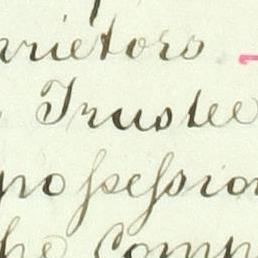 rrietors
Trustee
possession
the Comp